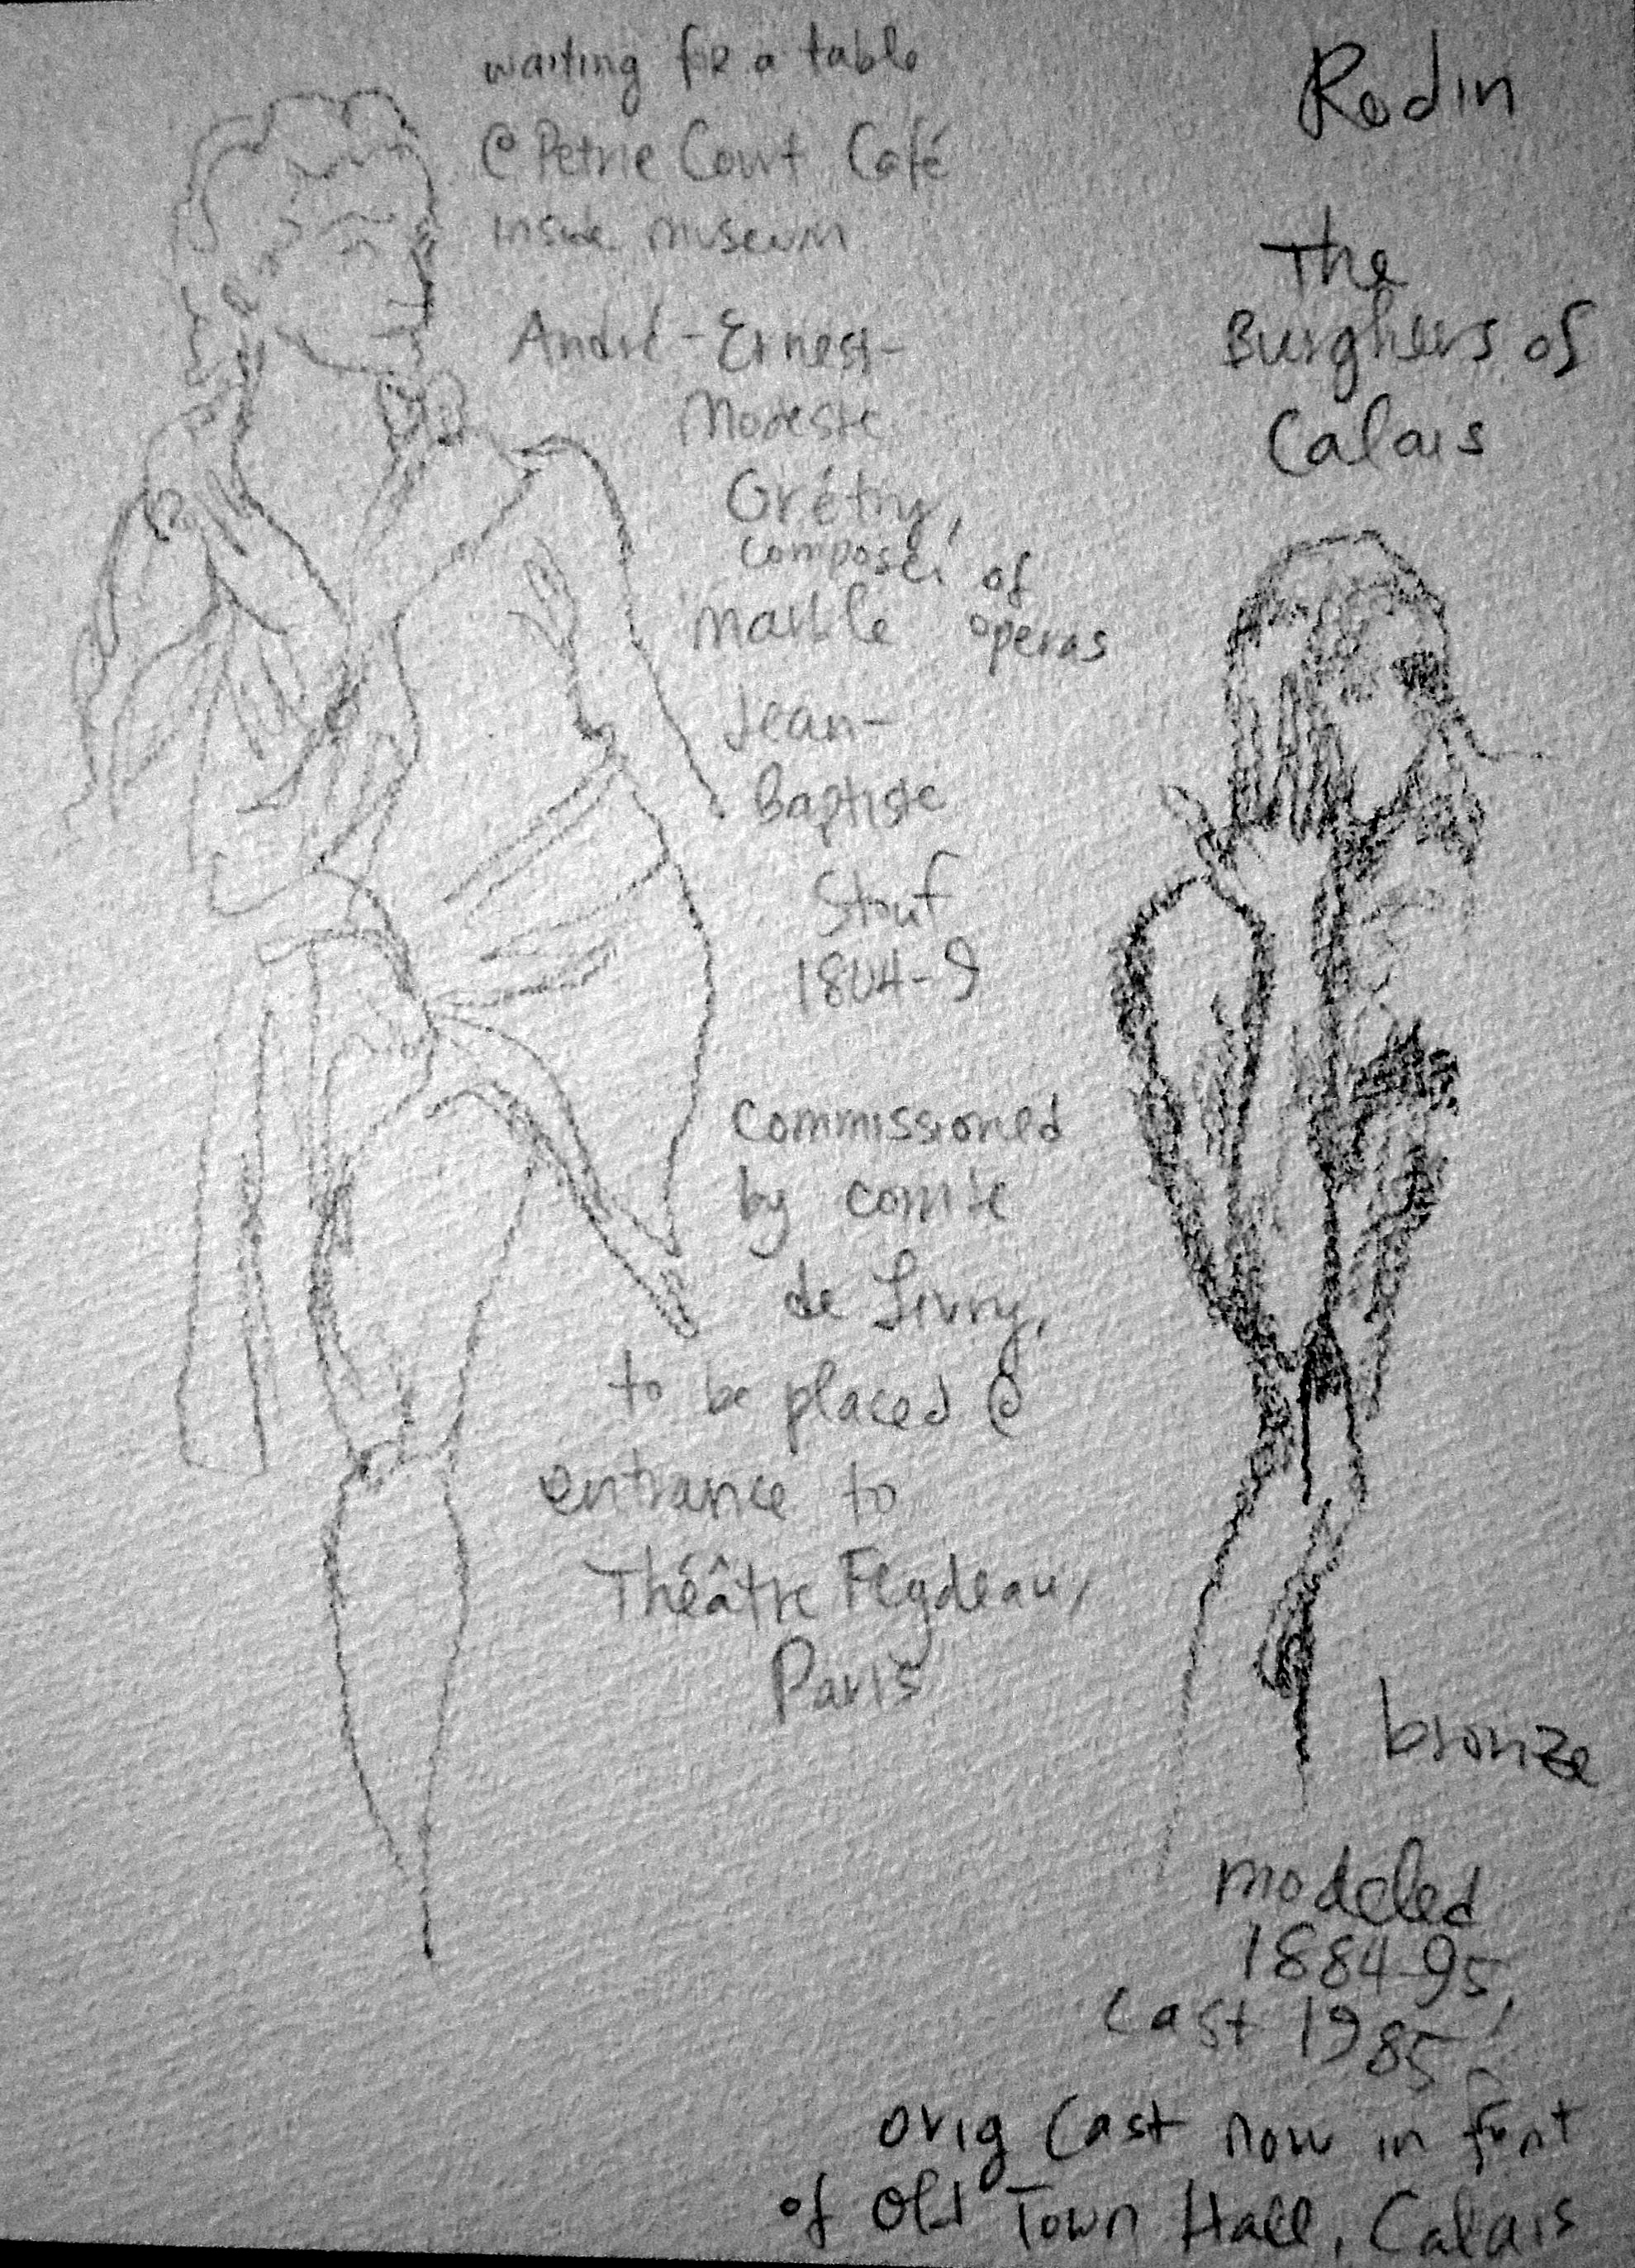 waiting for a table
@ Petrie Court Café
inside museum
André-Ernest-
Modeste
Grétry,
composer of
operas
marble
Jean-
Baptiste
Stouf
1804-9
commissioned
by comte
de Livry,
to be placed @
entrance to
Théâtre Feydeau,
Paris
Rodin
The
Burghers of
Calais
bronze
modeled
1884-95,
cast 1985
orig cast now in front
of Old Town Hall, Calais